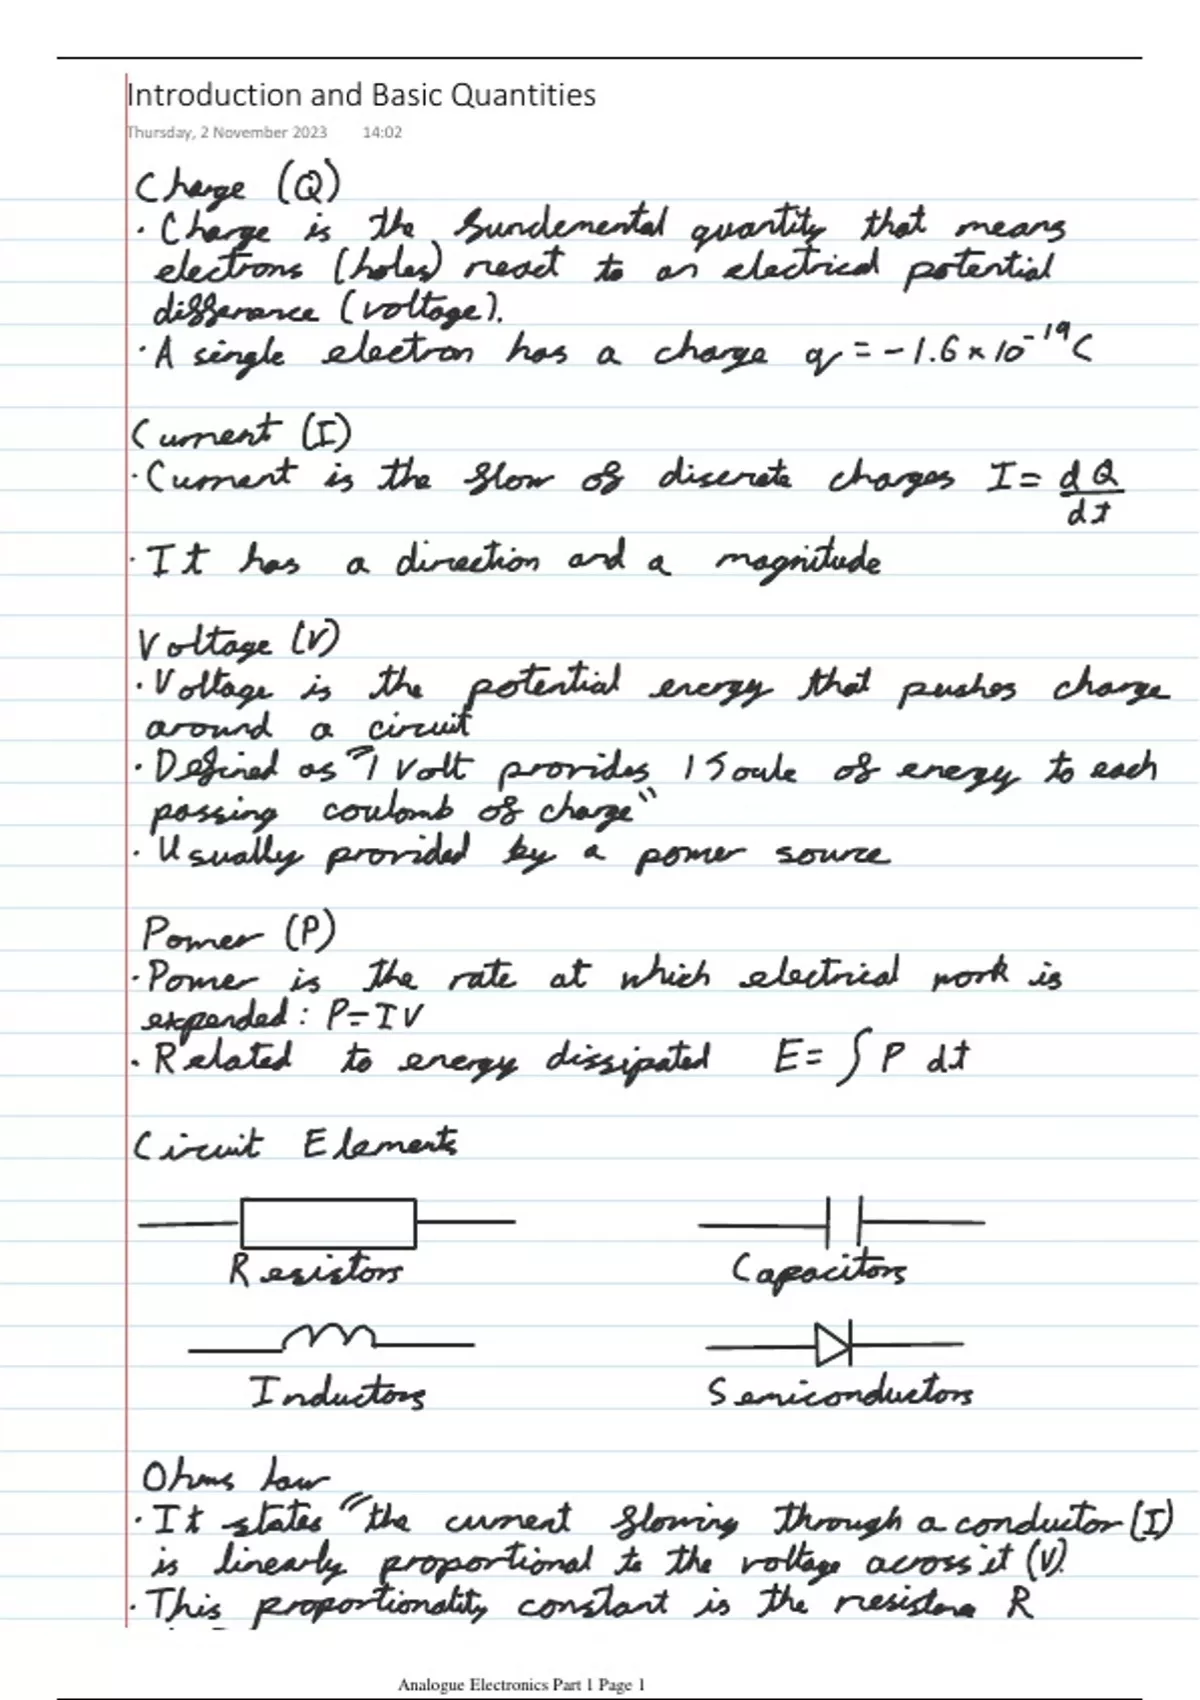 Introduction and Basic Quantities
Thursday, 2 November 2023 14:02
Charge (Q)
· Charge is the fundemental quantity that means
electrons (holes) react to an electrical potential
difference (voltage).
· A single electron has a charge q = -1.6 × 10⁻¹⁹ C
Current (I)
· Current is the flow of discrete charges I = dQ/dt
· It has a direction and a magnitude
Voltage (V)
· Voltage is the potential energy that pushes charge
around a circuit
· Defined as "1 Volt provides 1 Joule of energy to each
passing coulomb of charge"
· Usually provided by a power source
Power (P)
· Power is the rate at which electrical work is
expended: P=IV
· Related to energy dissipated E= ∫ P dt
Circuit Elements
Resistors Capacitors
Inductors Semiconductors
Ohms law
· It states "the current flowing through a conductor (I)
is linearly proportional to the voltage across it (V).
· This proportionality constant is the resistance R
Analogue Electronics Part 1 Page 1